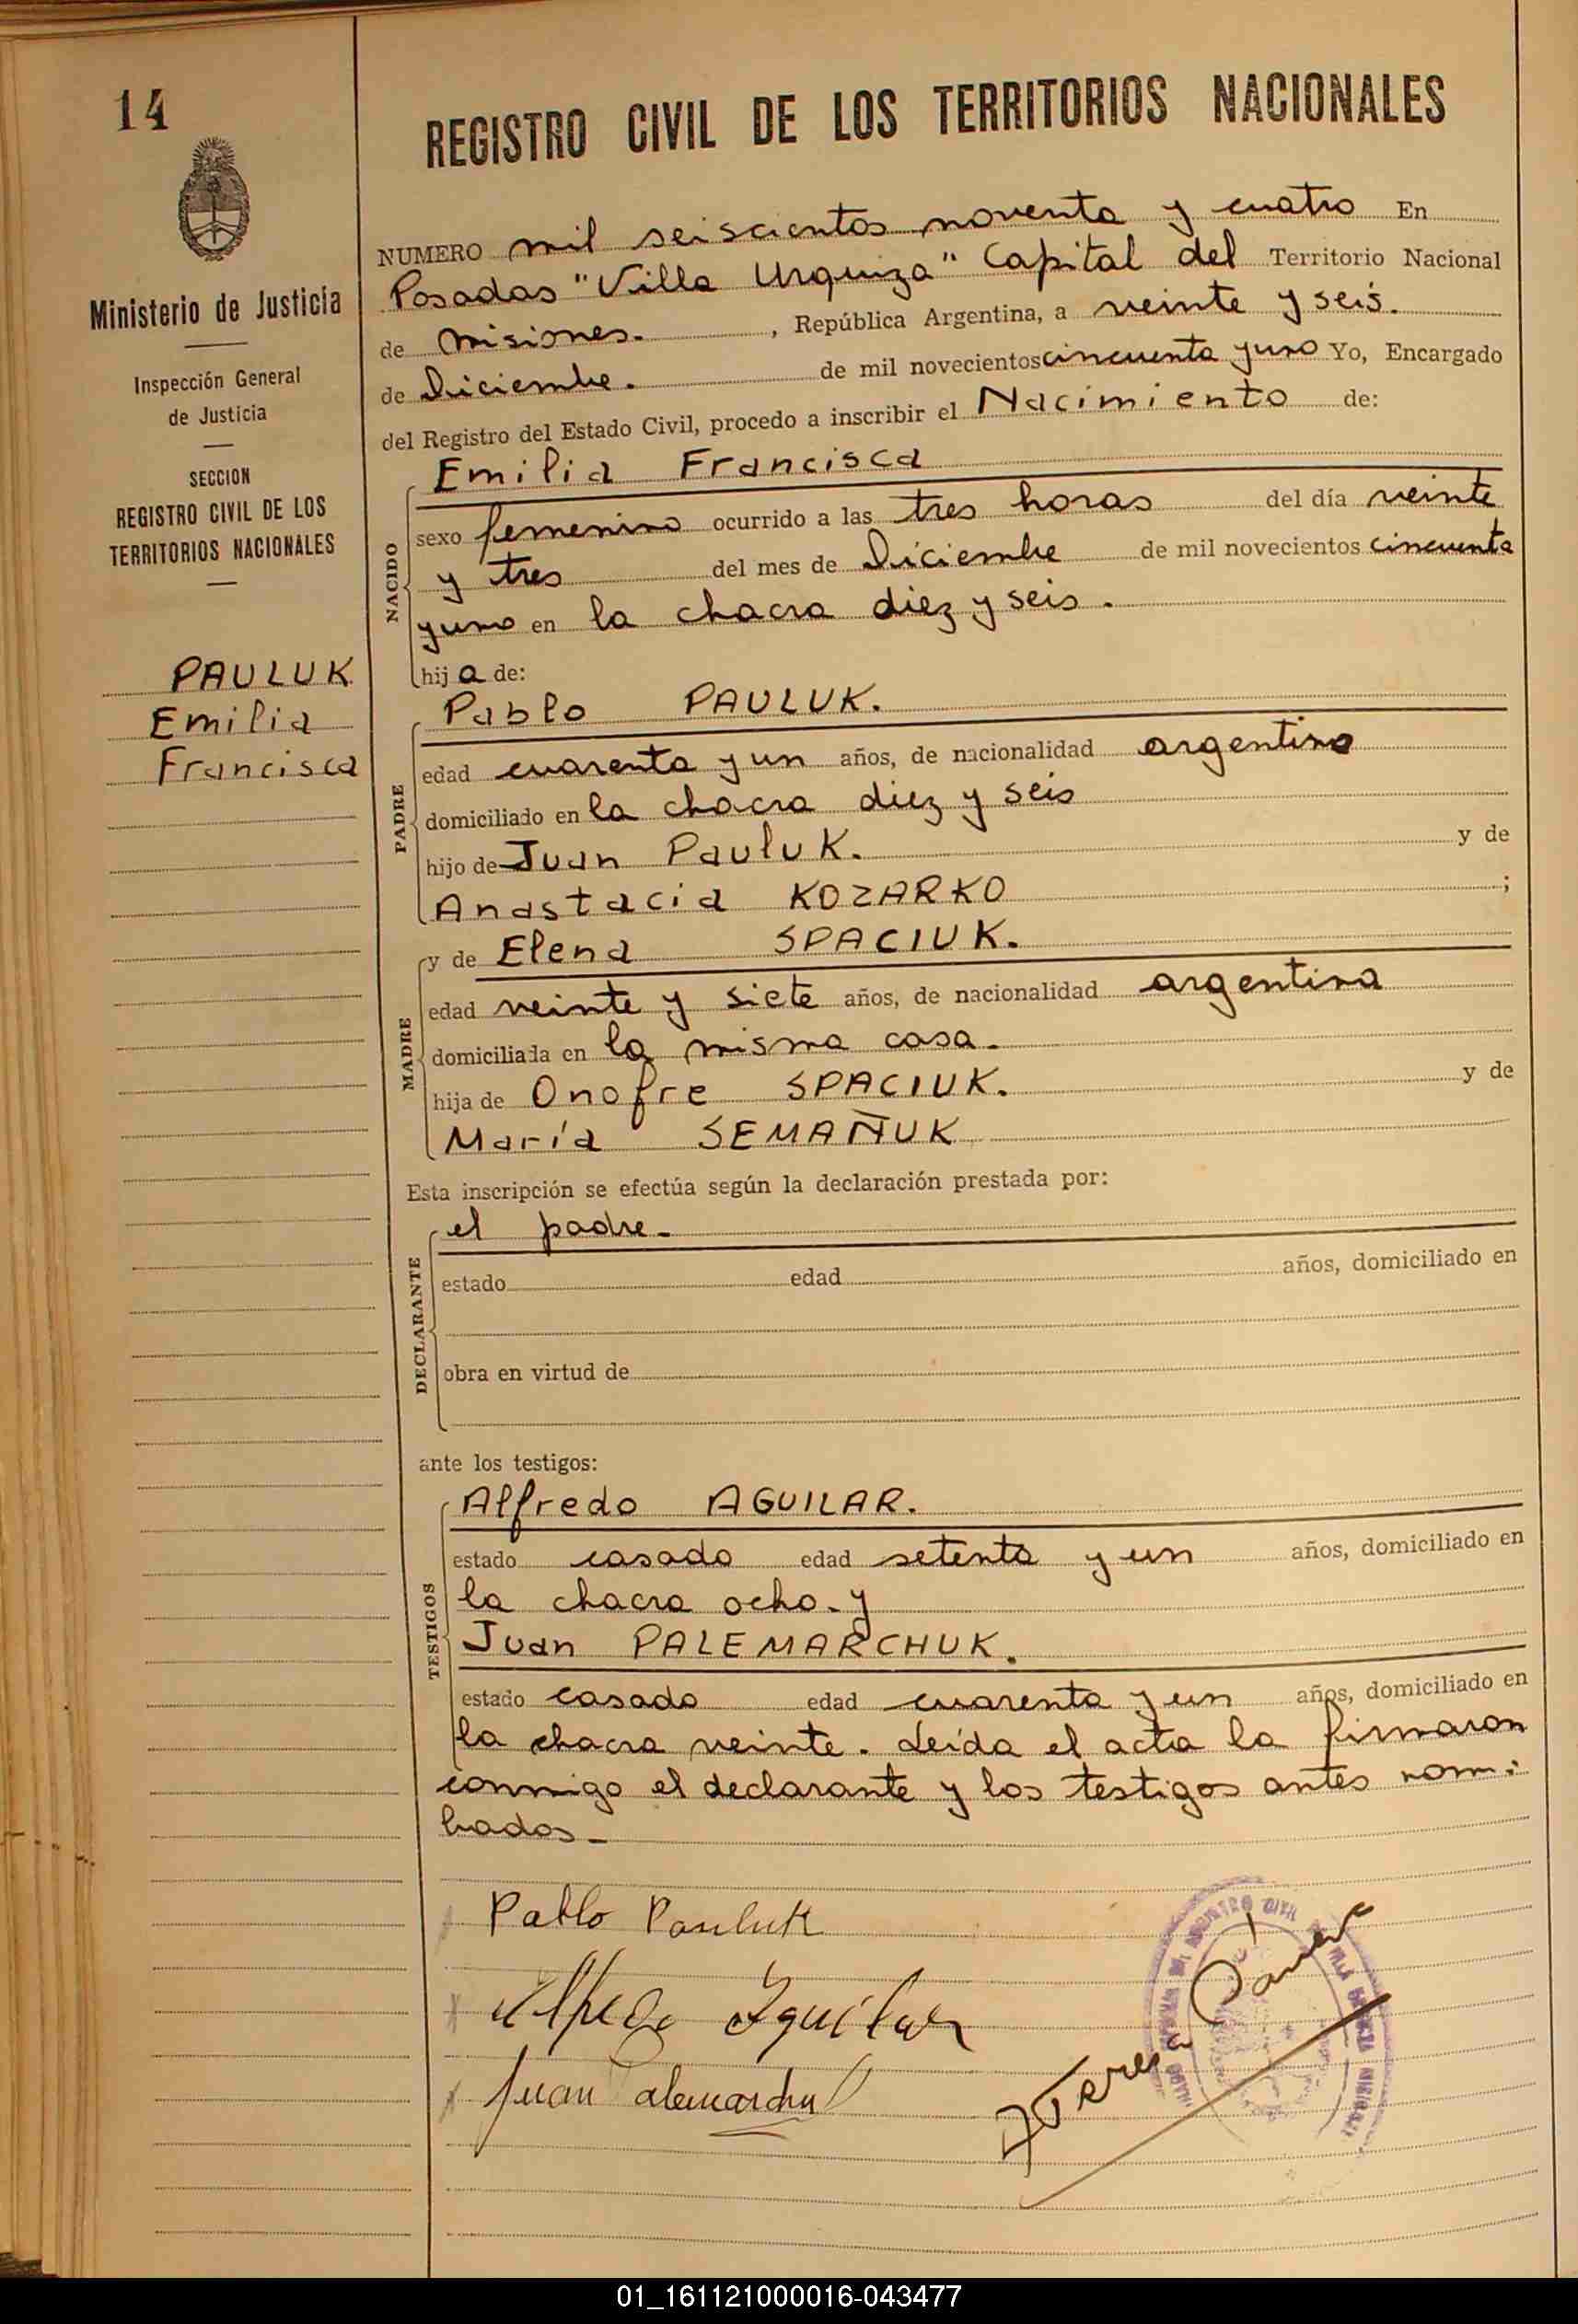 14
REGISTRO CIVIL DE LOS TERRITORIOS NACIONALES
Ministerio de Justicia
Inspección General
de Justicia
SECCION
REGISTRO CIVIL DE LOS
TERRITORIOS NACIONALES
PAULUK
Emilia
Francisca
NUMERO mil seiscientos noventa y cuatro En
Posadas "Villa Urquiza" Capital del Territorio Nacional
de Misiones. , República Argentina, a veinte y seis.
de Diciembre. de mil novecientos cincuenta y uno Yo, Encargado
del Registro del Estado Civil, procedo a inscribir el Nacimiento de:
NACIDO
Emilia Francisca
sexo femenino ocurrido a las tres horas del día veinte
y tres del mes de Diciembre de mil novecientos cincuenta
y uno en la chacra diez y seis.
hija de:
PADRE
Pablo PAULUK.
edad cuarenta y un años, de nacionalidad argentino
domiciliado en la chacra diez y seis
hijo de Juan Pauluk. y de
Anastacia KOZARKO ;
MADRE
y de Elena SPACIUK.
edad veinte y siete años, de nacionalidad argentina
domiciliada en la misma casa.
hija de Onofre SPACIUK. y de
María SEMAÑUK
Esta inscripción se efectúa según la declaración prestada por:
DECLARANTE
el padre.
estado edad años, domiciliado en
obra en virtud de
ante los testigos:
TESTIGOS
Alfredo AGUILAR.
estado casado edad setenta y un años, domiciliado en
la chacra ocho. y
Juan PALEMARCHUK.
estado casado edad cuarenta y un años, domiciliado en
la chacra veinte. Leída el acta la firmaron
conmigo el declarante y los testigos antes nom-
brados.
Pablo Pauluk
Alfredo Aguilar
Juan
REGISTRO CIVIL
01_161121000016-043477